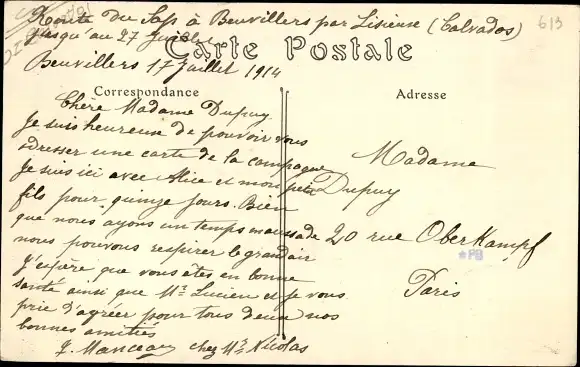 Route du Sap à Beuvillers par Lisieux (Calvados)
jusqu'au 27 Juillet
613
Carte Postale
Beuvillers 17 Juillet 1914
Correspondance
Chère Madame Dupuy
Je suis heureuse de pouvoir vous
adresser une carte de la campagne
Je suis ici avec Alice et mon petit
fils pour quinze jours. Bien
que nous ayons un temps maussade
nous pouvons respirer le grand air
J'espère que vous êtes en bonne
santé ainsi que Mr Lucien et je vous
prie d'agréer pour tous deux nos
bonnes amitiés
J. Manceau chez Mr Nicolas
Adresse
Madame
Dupuy
20 rue Oberkampf
*PB
Paris